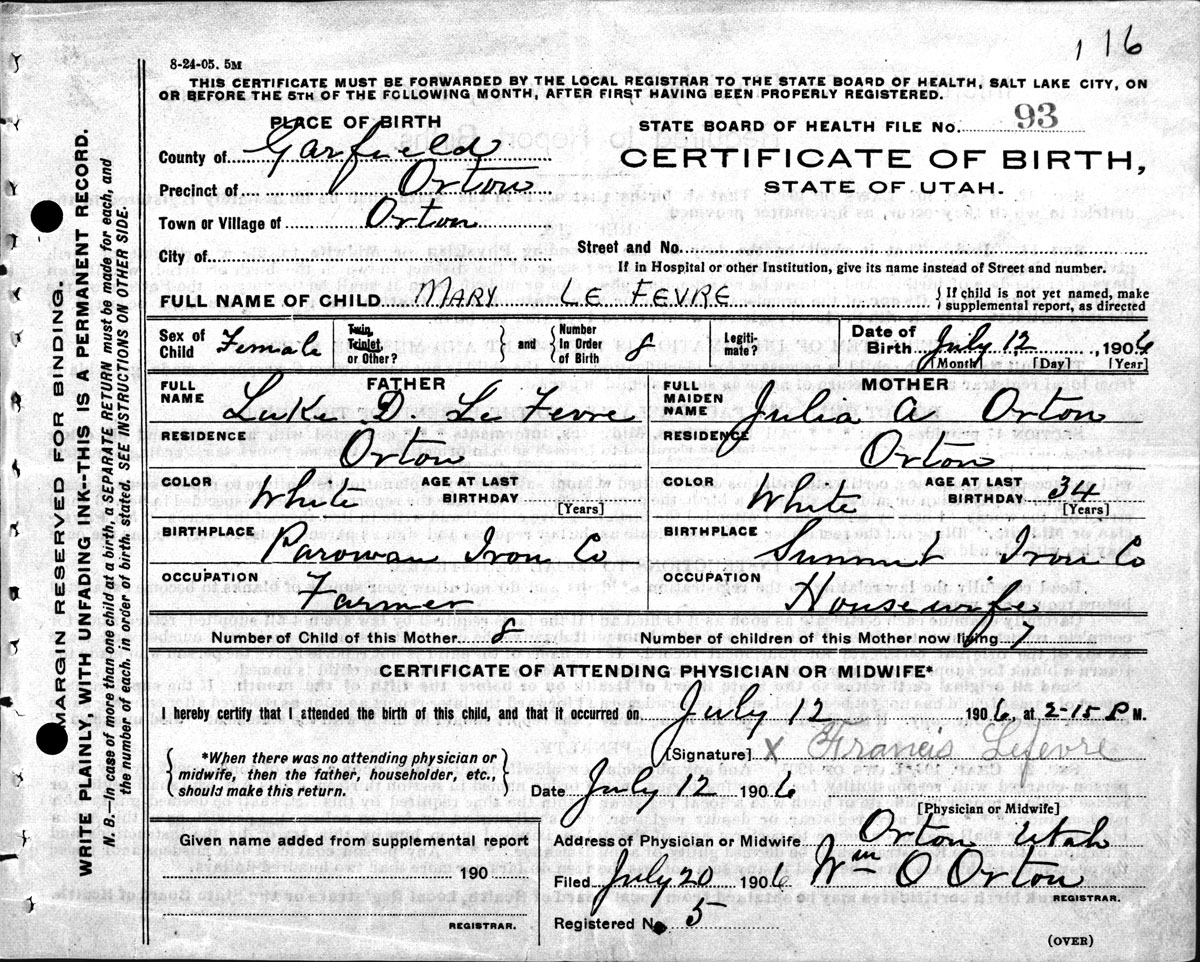 1 16
8-24-05. 5M
THIS CERTIFICATE MUST BE FORWARDED BY THE LOCAL REGISTRAR TO THE STATE BOARD OF HEALTH, SALT LAKE CITY, ON
OR BEFORE THE 5TH OF THE FOLLOWING MONTH, AFTER FIRST HAVING BEEN PROPERLY REGISTERED.
PLACE OF BIRTH
County of Garfield
Precinct of Orton
Town or Village of Orton
City of
STATE BOARD OF HEALTH FILE No. 93
CERTIFICATE OF BIRTH,
STATE OF UTAH.
Street and No.
If in Hospital or other Institution, give its name instead of Street and number.
FULL NAME OF CHILD MARY LE FEVRE { If child is not yet named, make
supplemental report, as directed
Sex of Child Female
Twin, Triplet, or Other? } and { Number In Order of Birth 8
Legiti-mate?
Date of Birth July 12, 1906
[Month] [Day] [Year]
FATHER
FULL NAME Luke D Le Fevre
RESIDENCE Orton
COLOR White AGE AT LAST BIRTHDAY [Years]
BIRTHPLACE Parowan Iron Co
OCCUPATION Farmer
MOTHER
FULL MAIDEN NAME Julia A Orton
RESIDENCE Orton
COLOR White AGE AT LAST BIRTHDAY 34 [Years]
BIRTHPLACE Summit Iron Co
OCCUPATION Housewife
Number of Child of this Mother 8 Number of children of this Mother now living 7
CERTIFICATE OF ATTENDING PHYSICIAN OR MIDWIFE*
I hereby certify that I attended the birth of this child, and that it occurred on July 12 1906, at 2-15 P M.
{ *When there was no attending physician or
midwife, then the father, householder, etc.,
should make this return. }
[Signature] X Francis Lefevre
Date July 12 1906
[Physician or Midwife]
Address of Physician or Midwife Orton Utah
Filed July 20 1906 Wm O Orton
REGISTRAR.
Registered No. 5
Given name added from supplemental report
190
REGISTRAR.
(OVER)
MARGIN RESERVED FOR BINDING.
WRITE PLAINLY WITH UNFADING INK—THIS IS A PERMANENT RECORD.
N. B.—In case of more than one child at a birth, a SEPARATE RETURN must be made for each, and
the number of each, in order of birth, stated. SEE INSTRUCTIONS ON OTHER SIDE.